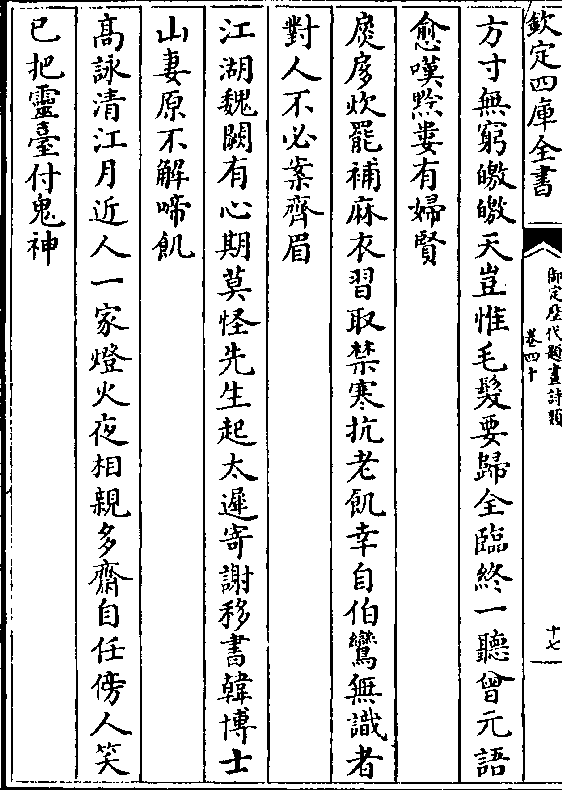 欽定四庫全書
御定歴代題畫詩類
卷四十
十七
方寸無窮皦皦天豈惟毛髮要歸全臨終一聽曾元語
愈嘆黔婁有婦賢
扊扅炊罷補麻衣習取禁寒抗老飢幸自伯鸞無識者
對人不必案齊眉
江湖魏闕有心期莫怪先生起太遲寄謝移書韓博士
山妻原不解啼飢
髙詠清江月近人一家燈火夜相親多齋自任傍人笑
已把靈臺付鬼神